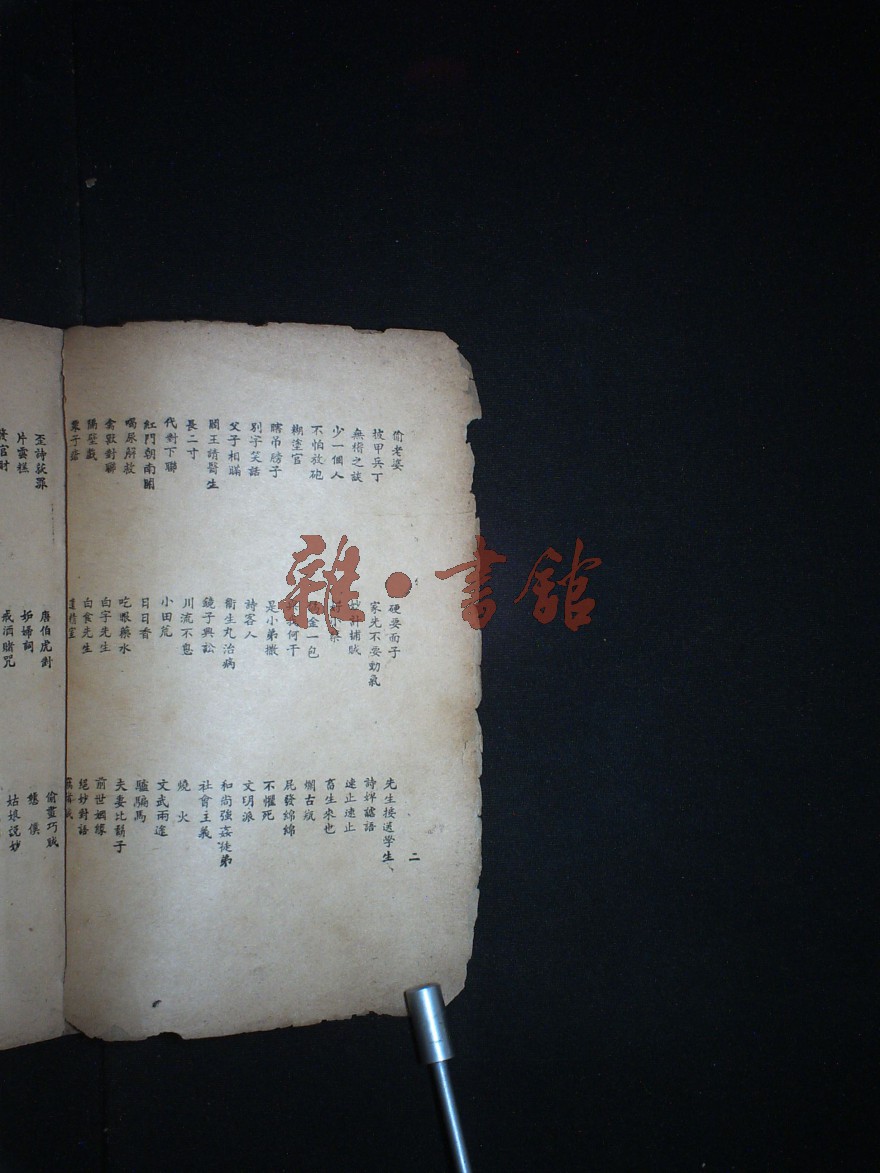 偷老婆
披甲兵丁
無稽之談
少一個人
不怕放砲
糊塗官
瞎吊膀子
別字笑話
父子相瞞
閻王請醫生
長二寸
代對下聯
紅門朝南開
喝尿解救
禽獸對聯
隔壁戲
硬要面子
家先不要動氣
金一包
何干
是小弟撒
詩客人
衛生丸治病
鏡子興訟
川流不息
小田荒
日日香
吃眼藥水
白字先生
白食先生
先生接送學生
詩婢謔語
速止速止
畜生來也
爛古玩
屁發綿綿
不懼死
文明派
和尚強姦徒弟
社會主義
燒火
文武兩途
驢騙馬
夫妻比鬍子
前世姻緣
絕妙對語
二
歪詩获罪
片雲糕
唐伯虎對
妒婦詞
戒酒賭咒
偷畫巧賊
姑娘說妙
雜·書館